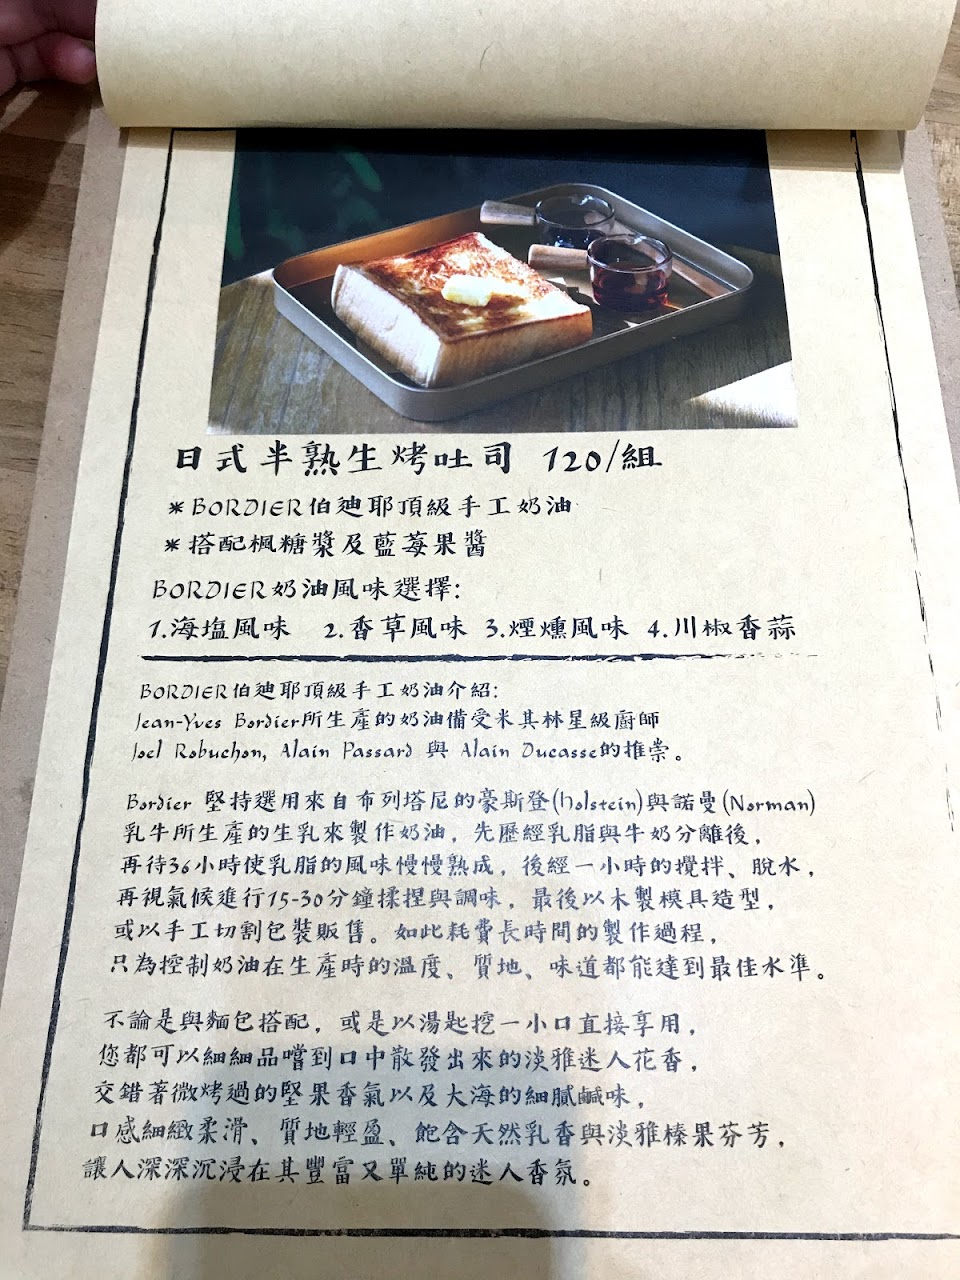 日式半熟生烤吐司 120/組
*BORDIER伯廸耶頂級手工奶油
*搭配楓糖漿及藍莓果醬
BORDIER奶油風味選擇:
1.海塩風味 2.香草風味 3.煙燻風味 4.川椒香蒜
BORDIER伯廸耶頂級手工奶油介紹:
Jean-Yves Bordier所生產的奶油備受米其林星級廚師
Joel Robuchon, Alain Passard 與 Alain Ducasse的推崇。
Bordier 堅持選用來自布列塔尼的豪斯登(holstein)與諾曼(Norman)
乳牛所生產的生乳來製作奶油，先歷經乳脂與牛奶分離後，
再待36小時使乳脂的風味慢慢熟成，後經一小時的攪拌、脫水，
再視氣候進行15-30分鐘揉捏與調味，最後以木製模具造型，
或以手工切割包裝販售。如此耗費長時間的製作過程，
只為控制奶油在生產時的溫度、質地、味道都能達到最佳水準。
不論是與麵包搭配，或是以湯匙挖一小口直接享用，
您都可以細細品嚐到口中散發出來的淡雅迷人花香，
交錯著微烤過的堅果香氣以及大海的細膩鹹味，
口感細緻柔滑、質地輕盈、飽含天然乳香與淡雅榛果芬芳，
讓人深深沉浸在其豐富又單純的迷人香氛。